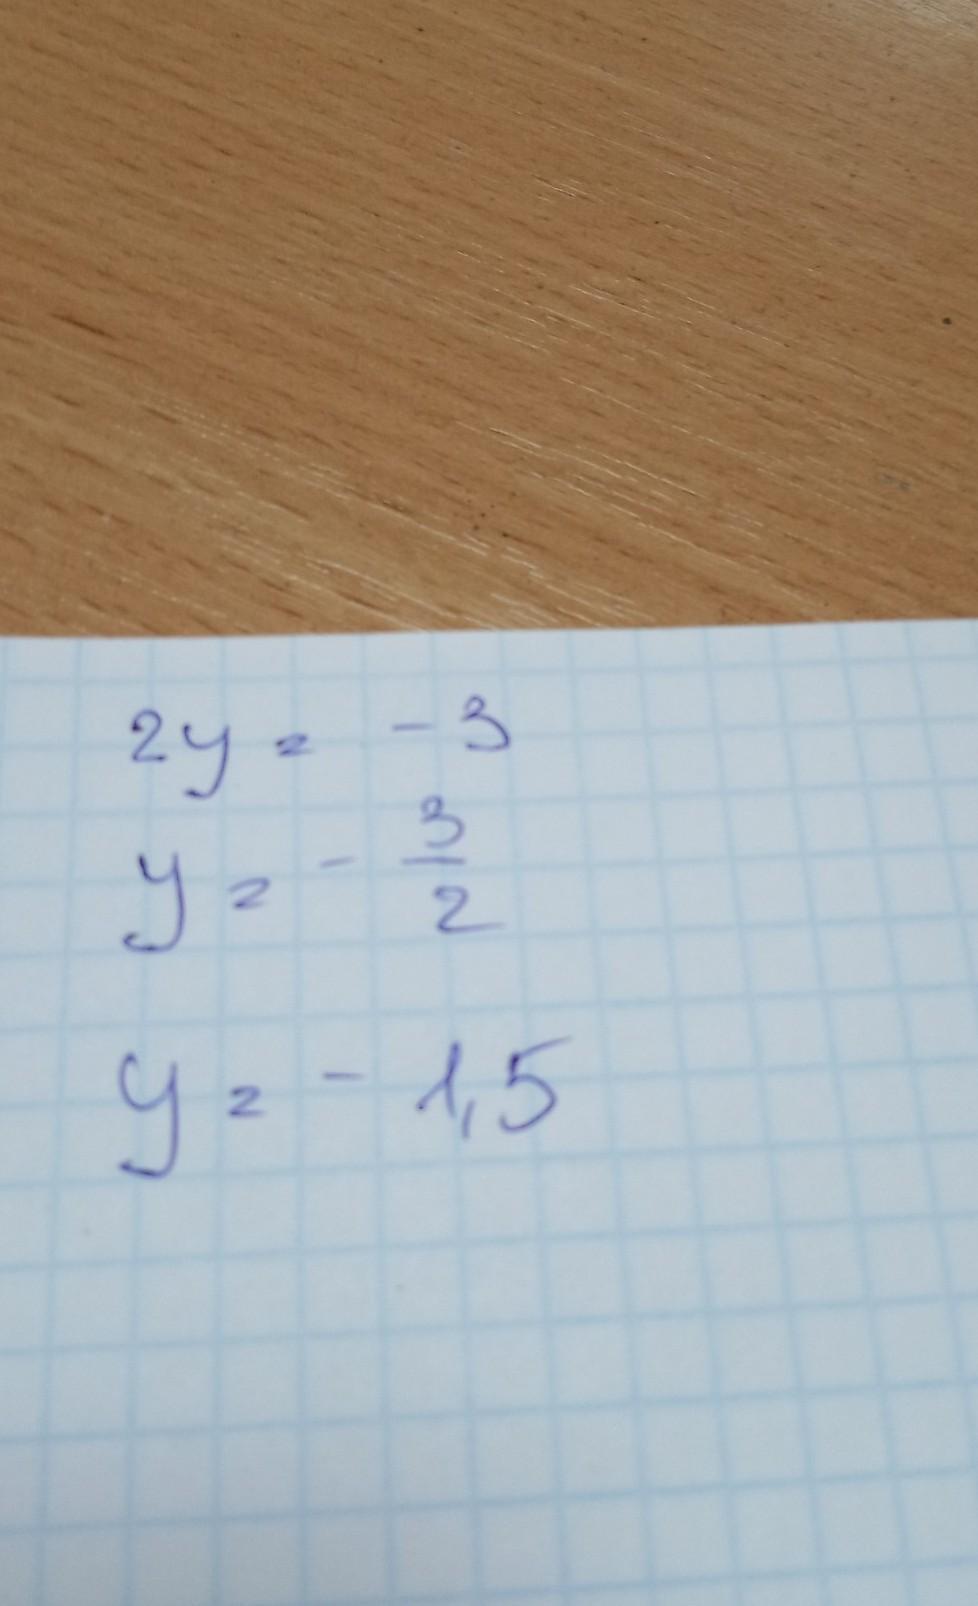 2y = - 3
y = - 3/2
y = - 1,5